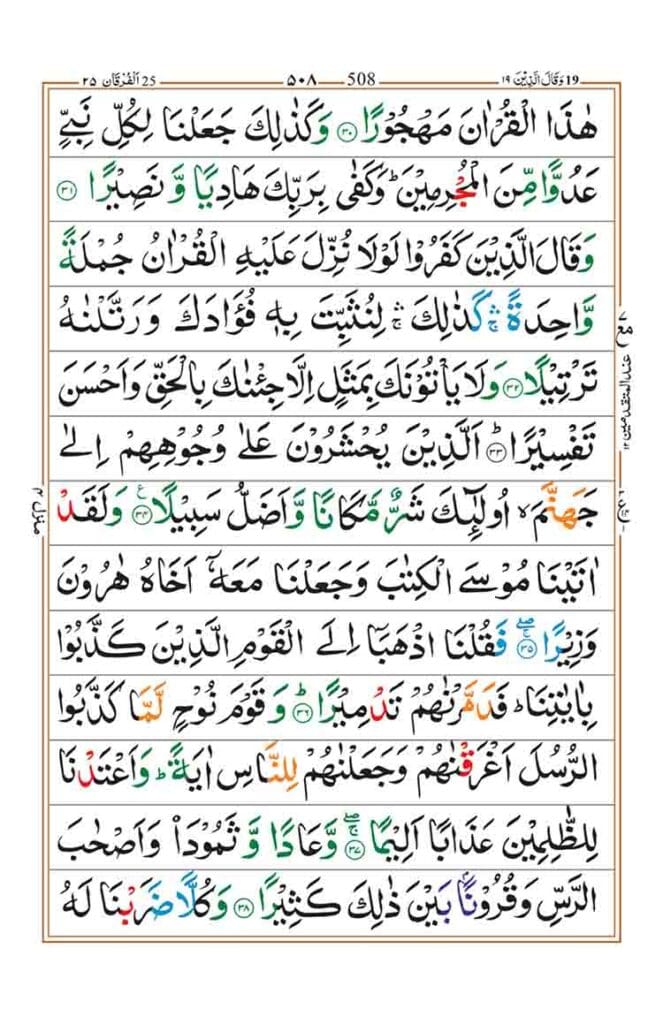 19 وَقَالَ الَّذِيْنَ ١٩ 508 ۵۰۸ 25 اَلْفُرْقَان ۲۵
هٰذَا الْقُرْاٰنَ مَهْجُوْرًا ﴿۳۰﴾ وَكَذٰلِكَ جَعَلْنَا لِكُلِّ نَبِيٍّ
عَدُوًّا مِّنَ الْمُجْرِمِيْنَ ؕ وَكَفٰى بِرَبِّكَ هَادِيًا وَّ نَصِيْرًا ﴿۳۱﴾
وَقَالَ الَّذِيْنَ كَفَرُوْا لَوْلَا نُزِّلَ عَلَيْهِ الْقُرْاٰنُ جُمْلَةً
وَّاحِدَةً ۛۚ كَذٰلِكَ ۛۚ لِنُثَبِّتَ بِهٖ فُؤَادَكَ وَرَتَّلْنٰهُ
تَرْتِيْلًا ﴿۳۲﴾ وَلَا يَاْتُوْنَكَ بِمَثَلٍ اِلَّا جِئْنٰكَ بِالْحَقِّ وَاَحْسَنَ
تَفْسِيْرًا ؕ ﴿۳۳﴾ اَلَّذِيْنَ يُحْشَرُوْنَ عَلٰى وُجُوْهِهِمْ اِلٰى
جَهَنَّمَ ۙ اُولٰٓئِكَ شَرٌّ مَّكَانًا وَّاَضَلُّ سَبِيْلًا ﴿۳۴﴾ ع وَلَقَدْ
اٰتَيْنَا مُوْسَى الْكِتٰبَ وَجَعَلْنَا مَعَهٗۤ اَخَاهُ هٰرُوْنَ
وَزِيْرًا ۚۖ ﴿۳۵﴾ فَقُلْنَا اذْهَبَاۤ اِلَى الْقَوْمِ الَّذِيْنَ كَذَّبُوْا
بِاٰيٰتِنَا ؕ فَدَمَّرْنٰهُمْ تَدْمِيْرًا ؕ ﴿۳۶﴾ وَقَوْمَ نُوْحٍ لَّمَّا كَذَّبُوا
الرُّسُلَ اَغْرَقْنٰهُمْ وَجَعَلْنٰهُمْ لِلنَّاسِ اٰيَةً ؕ وَاَعْتَدْنَا
لِلظّٰلِمِيْنَ عَذَابًا اَلِيْمًا ۚۖ ﴿۳۷﴾ وَّعَادًا وَّ ثَمُوْدَا۟ وَاَصْحٰبَ
الرَّسِّ وَقُرُوْنًۢا بَيْنَ ذٰلِكَ كَثِيْرًا ﴿۳۸﴾ وَكُلًّا ضَرَبْنَا لَهُ
عند المتقدمين ١٢
منزل ۴